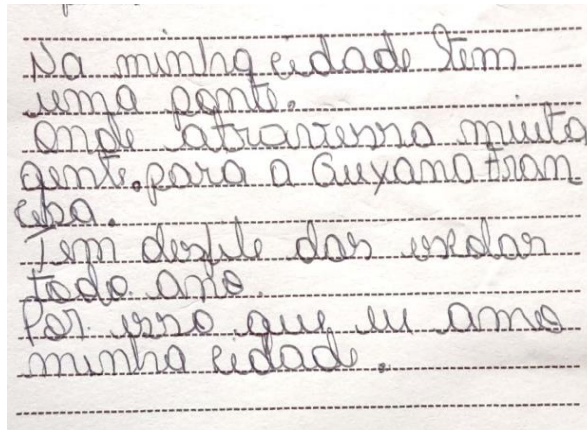 Na minha cidade tem
uma ponte.
onde atravessa muita
gente. para a Guyana Fran
cesa.
Tem desfile das escolas
todo ano.
Por isso que eu amo
minha cidade.